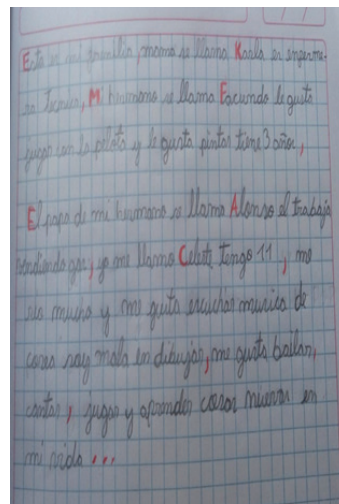 Esta es mi familia, mama se llama Karla es enferme-
ra Tecnica, Mi hermano se llama Facundo le gusta
jugar con la pelota y le gusta pintar tiene 3 años,
El papa de mi hermano se llama Alonso el trabaja
vendiendo gas, yo me llamo Celeste Tengo 11, me
rio mucho y me gusta escuchar musica de
corea soy mala en dibujar, me gusta bailar,
cantar, jugar y aprender cosas nuevas en
mi vida...